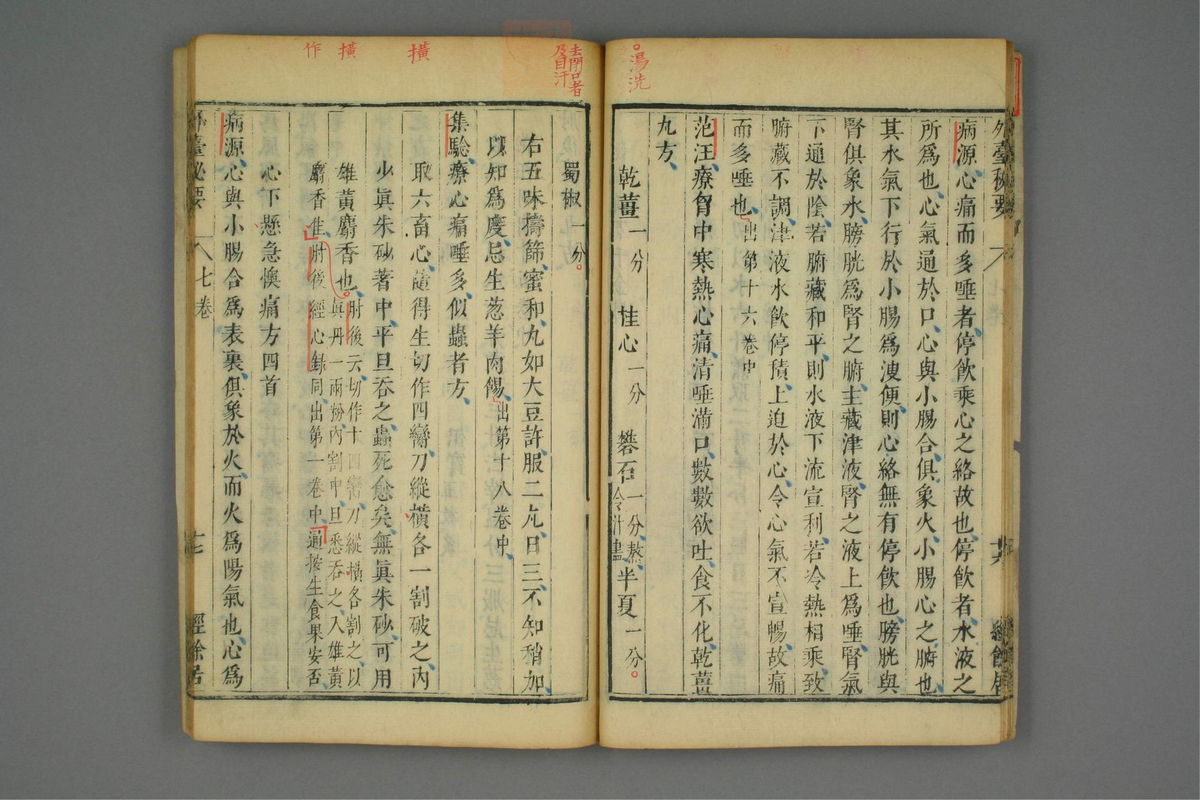 湯洗
外臺秘要
七卷
十六
經餘居
病源心痛而多唾者停飲乘心之絡故也停飲者水液之
所爲也心氣通於口心與小腸合俱象火小腸心之腑也
其水氣下行於小腸爲溲便則心絡無有停飲也膀胱與
腎俱象水膀胱爲腎之腑主藏津液腎之液上爲唾腎氣
下通於陰若腑藏和平則水液下流宣利若冷熱相乘致
腑藏不調津液水飲停積上迫於心令心氣不宣暢故痛
而多唾也出第十六卷中
范汪療胷中寒熱心痛清唾滿口數數欲吐食不化乾薑
丸方
乾薑一分 桂心一分 礬石一分熬令汁盡 半夏一分
去閉口者
及目汗
橫
橫
作
蜀椒一分
右五味擣篩蜜和丸如大豆許服二丸日三不知稍加
以知爲度忌生葱羊肉餳出第十八卷中
集驗療心痛唾多似蟲者方
取六畜心隨得生切作四臠刀縱橫各一割破之內
少眞朱砂著中平旦吞之蟲死愈矣無眞朱砂可用
雄黃麝香也肘後云切作十四臠刀縱橫各割之以
眞丹一兩粉內割中旦悉吞之入雄黃
麝香佳肘後經心錄同出第一卷中通按生食果安否
心下懸急懊痛方四首
病源心與小腸合爲表裏俱象於火而火爲陽氣也心爲
外臺秘要
七卷
十七
經餘居